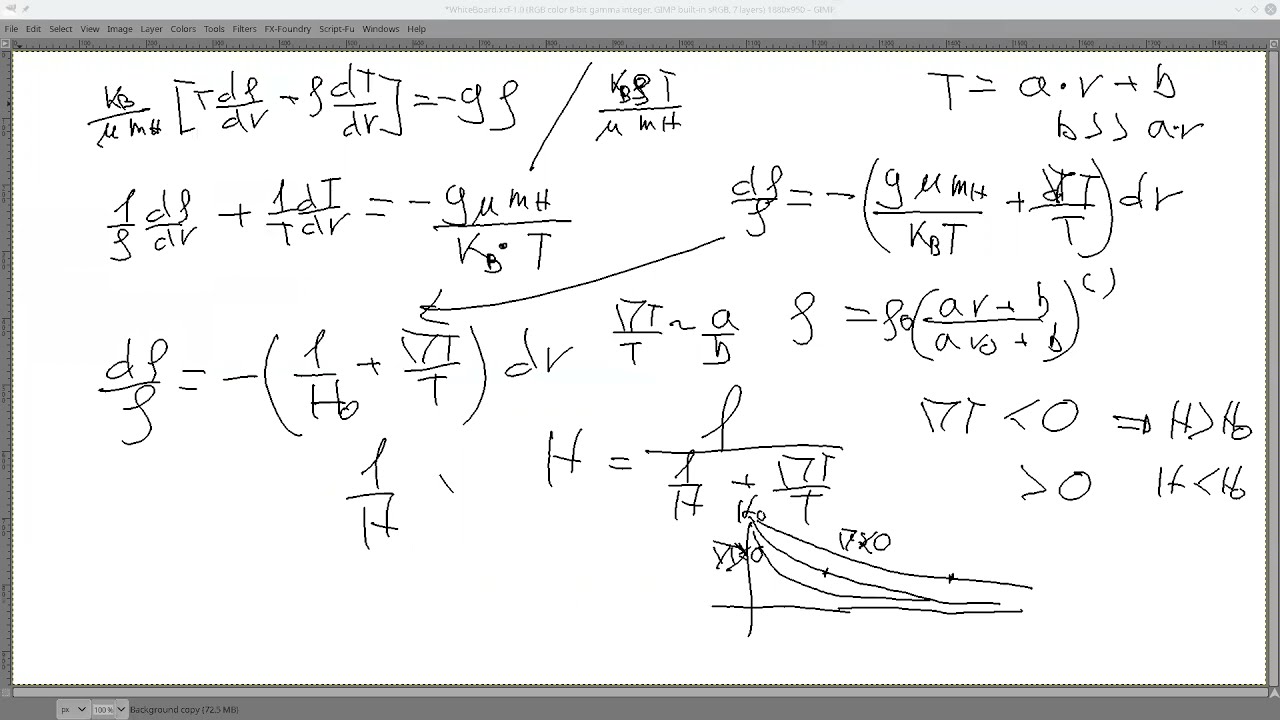 *WhiteBoard.xcf-1.0 (RGB color 8-bit gamma integer, GIMP built-in sRGB, 7 layers) 1680x950 – GIMP
File Edit Select View Image Layer Colors Tools Filters FX-Foundry Script-Fu Windows Help
K_B/(μ m_H) [T dρ/dr + ρ dT/dr] = -gρ
K_B ρ T/(μ m_H)
T = a·r + b
b >> a·r
1/ρ dρ/dr + 1/T dT/dr = - g μ m_H/(K_B · T)
dρ/ρ = -(g μ m_H/(K_B T) + ∇T/T) dr
dρ/ρ = -(1/H_0 + ∇T/T) dr
∇T/T ~ a/b
ρ = ρ_0 ((a r + b)/(a r_0 + b))^( )
∇T < 0 ⇒ H > H_0
> 0 H < H_0
1/H
H = 1/(1/H + ∇T/T)
H_0
∇<0
px 100 % Background copy (72,5 MB)